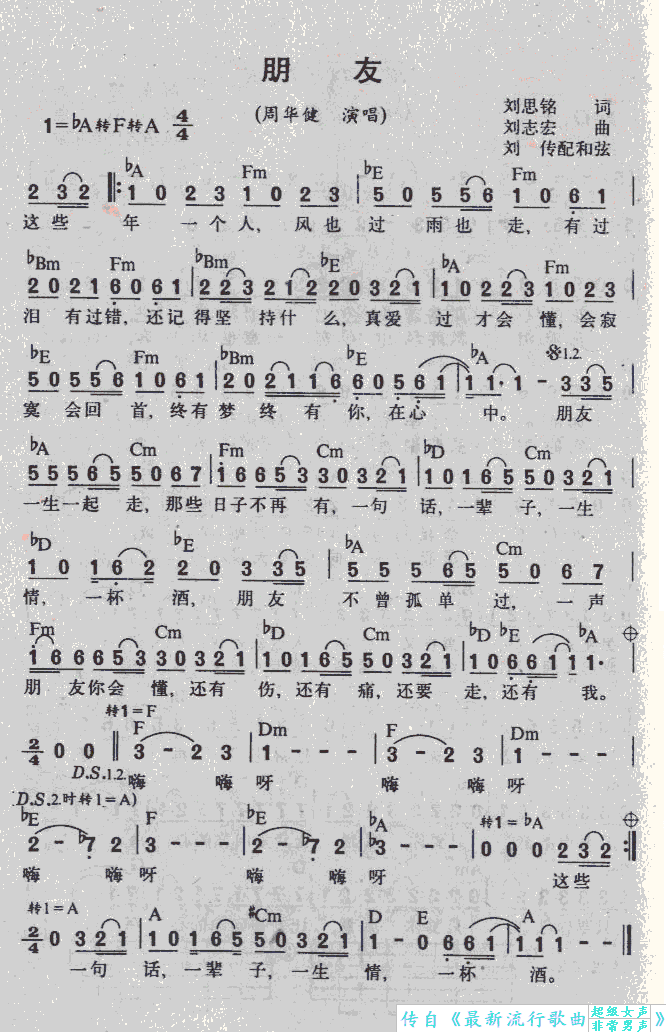 朋 友
(周华健 演唱)
刘思铭 词
刘志宏 曲
刘 传配和弦
1=♭A转F转A 4/4
♭A Fm ♭E Fm
2 3 2 ‖: 1 0 2 3 1 0 2 3 | 5 0 5 5 6 1 0 6 1 |
这些 年 一个人, 风也 过 雨也 走, 有过
♭Bm Fm ♭Bm ♭E ♭A Fm
2 0 2 1 6 0 6 1 | 2 2 3 2 1 2 2 0 3 2 1 | 1 0 2 2 3 1 0 2 3
泪 有过错, 还记得坚 持什 么, 真爱 过 才会 懂, 会寂
♭E Fm ♭Bm ♭E ♭A 𝄋1.2.
5 0 5 5 6 1 0 6 1 | 2 0 2 1 1 6 6 0 5 6 1 | 1 1· 1 - 3 3 5
寞 会回 首, 终有 梦 终 有 你, 在心 中。 朋友
♭A Cm Fm Cm ♭D Cm
5 5 5 6 5 5 0 6 7 | 1 6 6 5 3 3 0 3 2 1 | 1 0 1 6 5 5 0 3 2 1
一生一起 走, 那些 日子不再 有, 一句 话, 一辈 子, 一生
♭D ♭E ♭A Cm
1 0 1 6 2 2 0 3 3 5 | 5 5 5 6 5 5 0 6 7
情, 一杯 酒, 朋友 不曾孤单 过, 一声
Fm Cm ♭D Cm ♭D ♭E ♭A 𝄌
1 6 6 6 5 3 3 0 3 2 1 | 1 0 1 6 5 5 0 3 2 1 | 1 0 6 6 1 1 1·
朋 友你会 懂, 还有 伤, 还有 痛, 还要 走, 还有 我。
转1=F
F Dm F Dm
2/4 0 0 ‖ 3 - 2 3 | 1 - - - | 3 - 2 3 | 1 - - -
D.S.1.2. 嗨 嗨呀 嗨 嗨呀
D.S.2.时转1=A)
♭E F ♭E ♭A 转1=♭A 𝄌
2 - ♭7 2 | 3 - - - | 2 - ♭7 2 | ♭3 - - - | 0 0 0 2 3 2 :‖
嗨 嗨呀 嗨 嗨呀 这些
转1=A
A ♯Cm D E A
2/4 0 3 2 1 | 1 0 1 6 5 5 0 3 2 1 | 1 - 0 6 6 1 | 1 1 1 - - ‖
一句 话, 一辈 子, 一生 情, 一杯 酒。
传自《最新流行歌曲
超级女声
非常男声